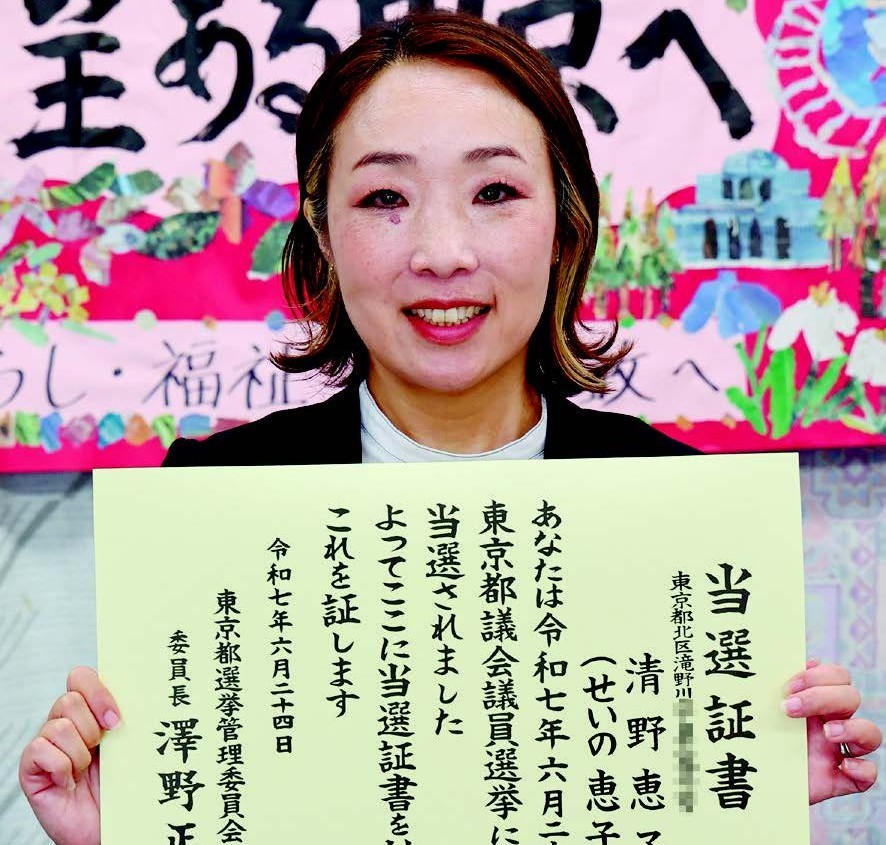 望ある東京へ
らし・福祉
政へ
当選証書
東京都北区滝野川
清野恵子
(せいの恵子
あなたは令和七年六月二十
東京都議会議員選挙に
当選されました
よってここに当選証書を
これを証します
令和七年六月二十四日
東京都選挙管理委員会
委員長 澤野正